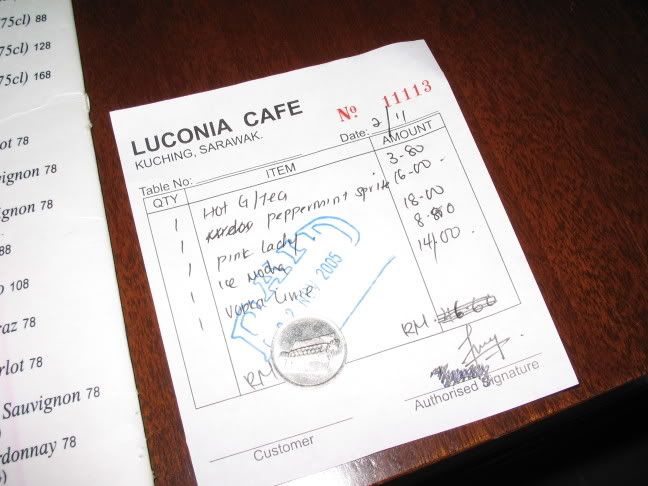 75cl) 88
75cl) 128
75cl) 168
ot 78
ignon 78
ignon 78
88
o 108
raz 78
rlot 78
Sauvignon 78
rdonnay 78
LUCONIA CAFE
KUCHING, SARAWAK.
Nº 11113
Date: 2/11
Table No:
QTY ITEM AMOUNT
1 Hot G/Tea 3-80
1 peppermint sprite 16-00.
1 pink lady 18-00
1 ice mocha 8.80
1 Vodka Lime 14.00.
2005
RM RM.
Customer
Authorised Signature